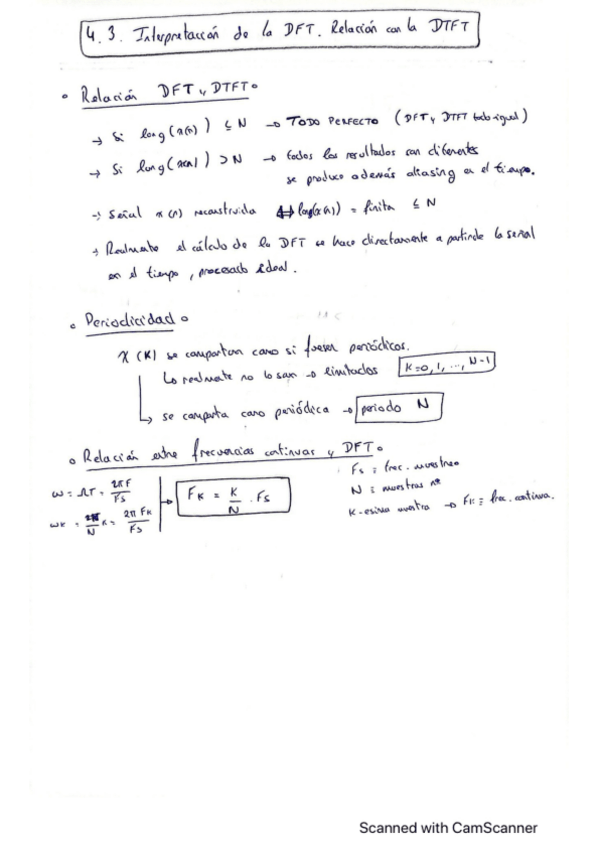 4.3. Interpretación de la DFT. Relación con la DTFT
∘ Relación DFT y DTFT∘
→ Si long(x(n)) ≤ N → TODO PERFECTO (DFT y DTFT todo igual)
→ Si long(x(n)) > N → todos los resultados son diferentes
se produce además aliasing en el tiempo.
→ Señal x(n) reconstruida ↔ long(x(n)) = finita ≤ N
→ Realmente el cálculo de la DFT se hace directamente a partir de la señal
en el tiempo, procesado ideal.
∘ Periodicidad∘
X(K) se comportan como si fuesen periódicos.
Lo realmente no lo son → limitados K=0,1,...,N-1
↳ se comporta como periódica → periodo N
∘ Relación entre frecuencias continuas y DFT∘
ω = ΩT = 2πF/Fs
ωk = 2π/N K = 2π Fk/Fs
FK = K/N . Fs
Fs ≡ frec. muestreo
N ≡ muestras
K-esima muestra → FK ≡ frec. continua.
Scanned with CamScanner